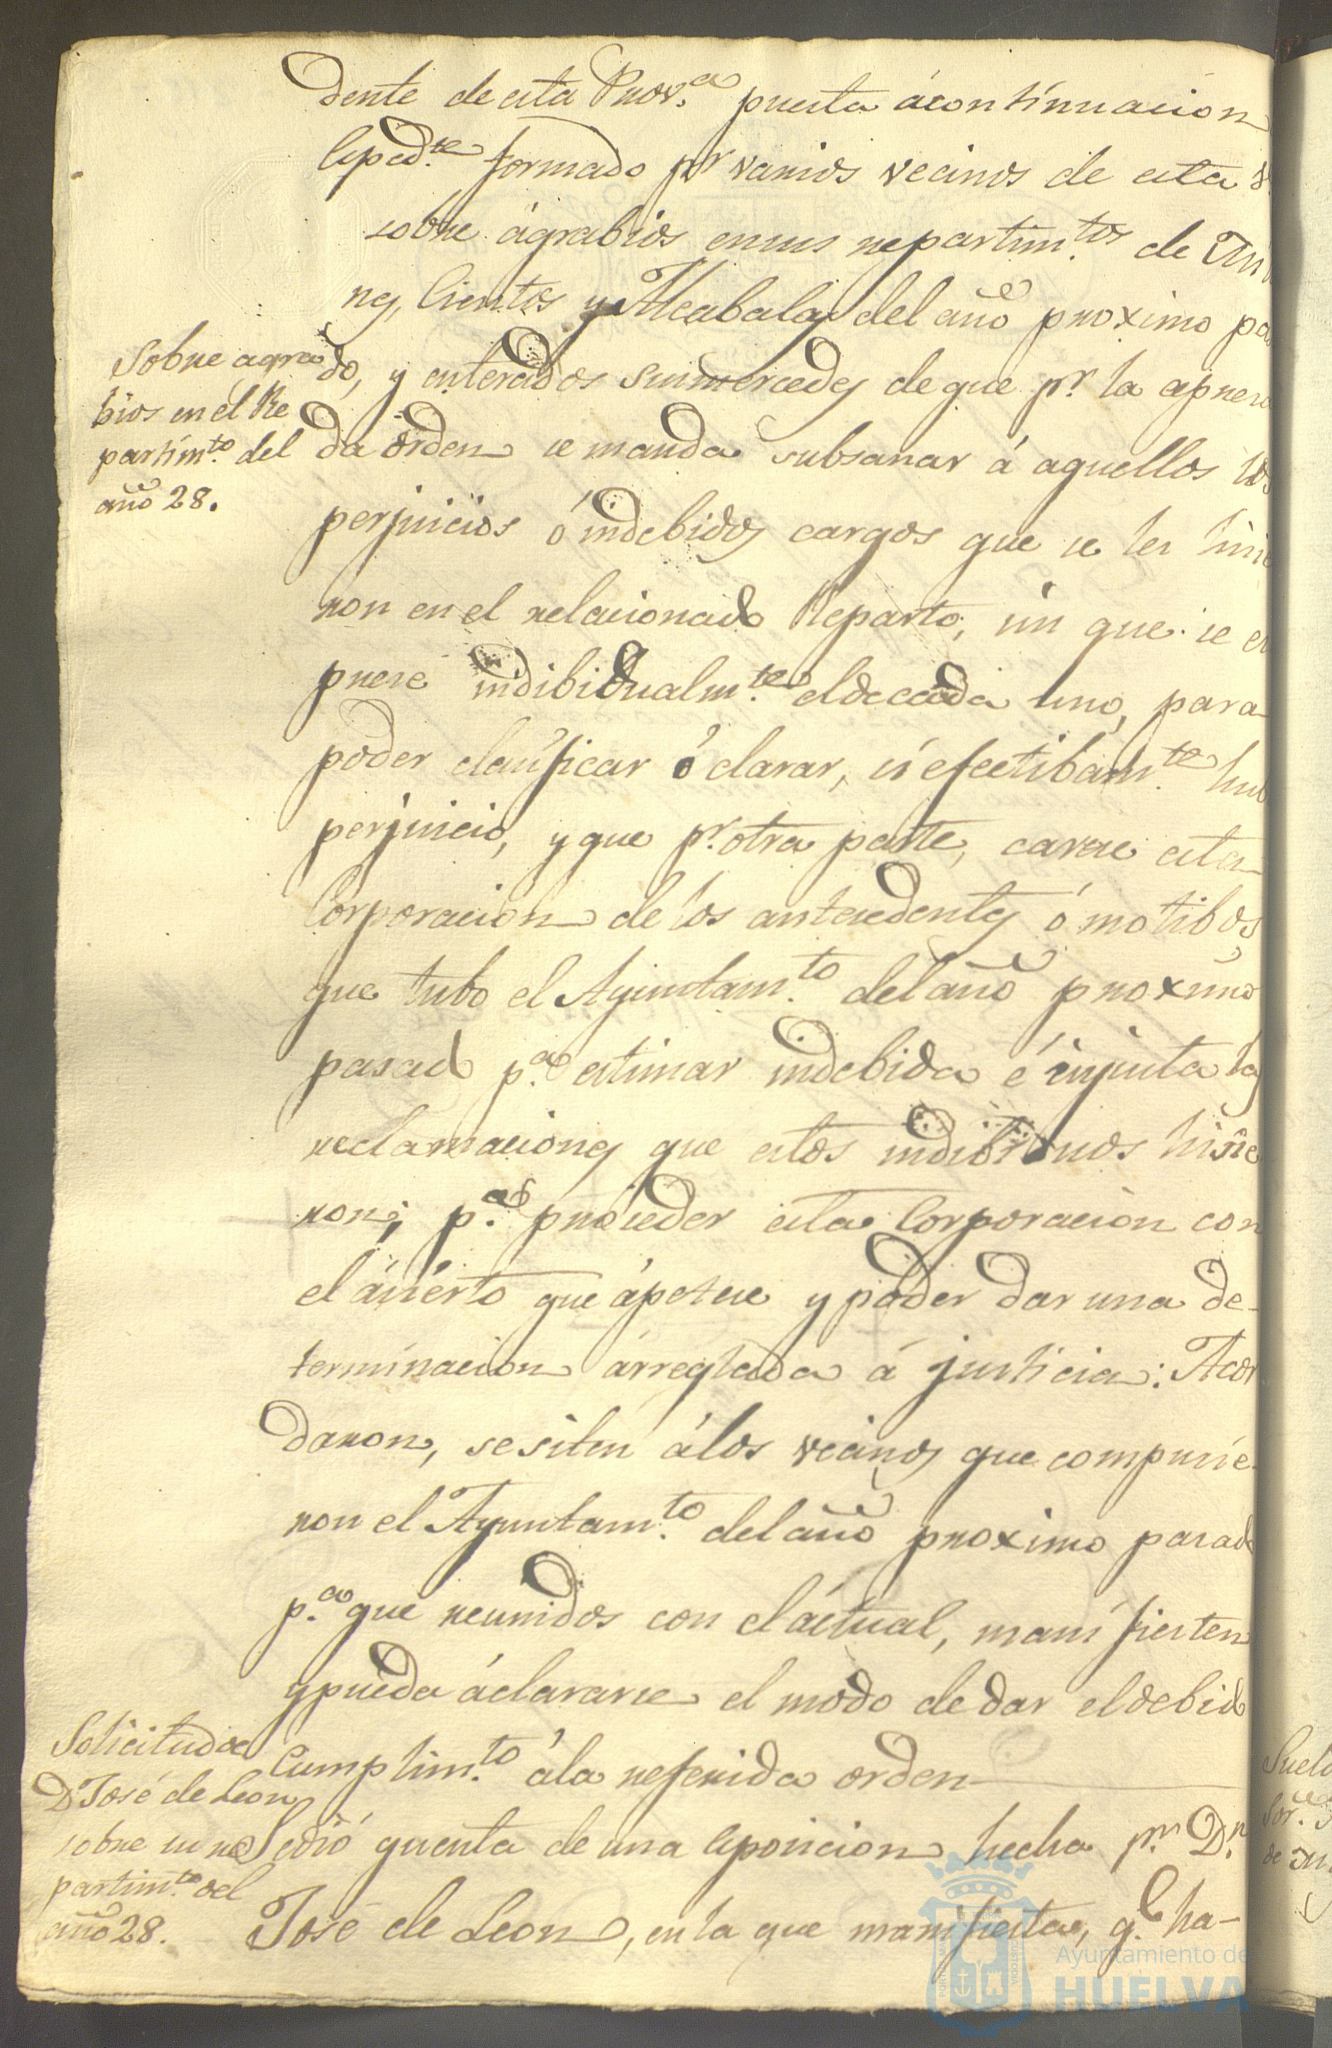 dente de esta Prov.a puesta á continuacion
Esped.te formado p.r varios vecinos de esta V.
sobre ágrabios en sus repartim.tos de
Cientos y Alcabalas del año proximo pa
Sobre agra
bios en él Re
partim.to del
año 28.
do, y enterados sus mercedes de que p.r la espresa
da órden se manda subsanar á aquellos los
perjuicios ó indebidos cargos que se les hicie
ron en el relacionado Reparto, sin que se es
prese indibidualm.te el de cada uno, para
poder clasificar ó clarar, si efectibam.te hubo
perjuicio, y que p.r otra parte, carece esta
Corporacion de los antecedentes ó motibos
que tubo el Ayuntam.to del año proximo
pasado p.a estimar indebida é injusta las
reclamaciones que estos indibiduos hicie
ron; p.a proceder esta Corporacion con
el ácierto que ápetece y poder dar una de-
terminacion árreglada á justicia: Acor
daron, se siten á los vecinos que compusie-
ron el Ayuntam.to del año proximo pasado
p.a que reunidos con el áctual, manifiesten
y pueda áclararse el modo de dar el debido
cumplim.to á la referida orden
Solicitud de
D. José de Leon
sobre su re
partim.to del
año 28.
Se dió quenta de una esposicion hecha p.r D.n
José de Leon, en la que manifiesta, q.e ha-
Ayuntamiento de
HUELVA